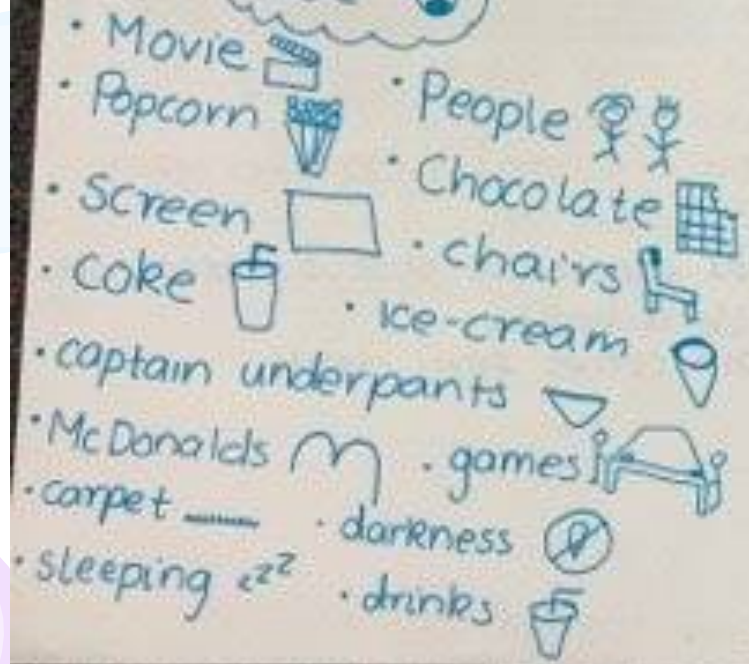 • Movie
• Popcorn
• People
• Chocolate
• screen
• chairs
• coke
• ice-cream
• captain underpants
• McDonalds
• games
• carpet
• darkness
• sleeping zzz
• drinks